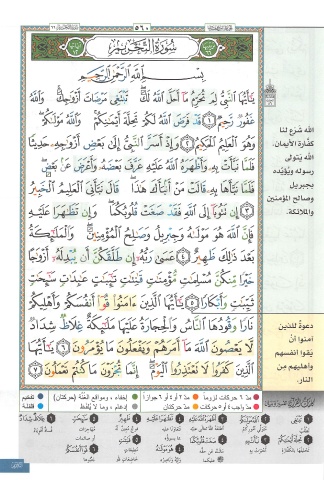 ٥٦٠
سُورَةُ التَّحْرِيمِ
بِسْمِ اللَّهِ الرَّحْمَٰنِ الرَّحِيمِ
يَٰٓأَيُّهَا النَّبِيُّ لِمَ تُحَرِّمُ مَآ أَحَلَّ اللَّهُ لَكَ ۖ تَبْتَغِي مَرْضَاتَ أَزْوَٰجِكَ ۚ وَاللَّهُ
غَفُورٌ رَّحِيمٌ ١ قَدْ فَرَضَ اللَّهُ لَكُمْ تَحِلَّةَ أَيْمَٰنِكُمْ ۚ وَاللَّهُ مَوْلَىٰكُمْ ۖ
وَهُوَ الْعَلِيمُ الْحَكِيمُ ٢ وَإِذْ أَسَرَّ النَّبِيُّ إِلَىٰ بَعْضِ أَزْوَٰجِهِ حَدِيثًا
فَلَمَّا نَبَّأَتْ بِهِ وَأَظْهَرَهُ اللَّهُ عَلَيْهِ عَرَّفَ بَعْضَهُ وَأَعْرَضَ عَنْ بَعْضٍ ۖ
فَلَمَّا نَبَّأَهَا بِهِ قَالَتْ مَنْ أَنْبَأَكَ هَٰذَا ۖ قَالَ نَبَّأَنِيَ الْعَلِيمُ الْخَبِيرُ
٣ إِنْ تَتُوبَآ إِلَى اللَّهِ فَقَدْ صَغَتْ قُلُوبُكُمَا ۖ وَإِنْ تَظَٰهَرَا عَلَيْهِ
فَإِنَّ اللَّهَ هُوَ مَوْلَىٰهُ وَجِبْرِيلُ وَصَٰلِحُ الْمُؤْمِنِينَ ۖ وَالْمَلَٰٓئِكَةُ
بَعْدَ ذَٰلِكَ ظَهِيرٌ ٤ عَسَىٰ رَبُّهُ إِنْ طَلَّقَكُنَّ أَنْ يُبْدِلَهُ أَزْوَٰجًا
خَيْرًا مِّنْكُنَّ مُسْلِمَٰتٍ مُّؤْمِنَٰتٍ قَٰنِتَٰتٍ تَٰٓئِبَٰتٍ عَٰبِدَٰتٍ سَٰٓئِحَٰتٍ
ثَيِّبَٰتٍ وَأَبْكَارًا ٥ يَٰٓأَيُّهَا الَّذِينَ ءَامَنُوا قُوٓا أَنْفُسَكُمْ وَأَهْلِيكُمْ
نَارًا وَقُودُهَا النَّاسُ وَالْحِجَارَةُ عَلَيْهَا مَلَٰٓئِكَةٌ غِلَاظٌ شِدَادٌ
لَّا يَعْصُونَ اللَّهَ مَآ أَمَرَهُمْ وَيَفْعَلُونَ مَا يُؤْمَرُونَ ٦ يَٰٓأَيُّهَا
الَّذِينَ كَفَرُوا لَا تَعْتَذِرُوا الْيَوْمَ ۖ إِنَّمَا تُجْزَوْنَ مَا كُنْتُمْ تَعْمَلُونَ ٧
الله شرع لنا
كفارة الأيمان.
الله يتولى
رسوله ويؤيده
بجبريل
وصالح المؤمنين
والملائكة.
دعوة للذين
آمنوا أن
يقوا أنفسهم
وأهليهم من
النار.
مدّ ٦ حركات لزوماً
مدّ ٢ أو ٤ أو ٦ جوازاً
إخفاء، ومواقع الغُنَّة (حركتان)
تفخيم
مدّ واجب ٤ أو ٥ حركات
مدّ حركتان
إدغام، وما لا يُلفظ
قلقلة